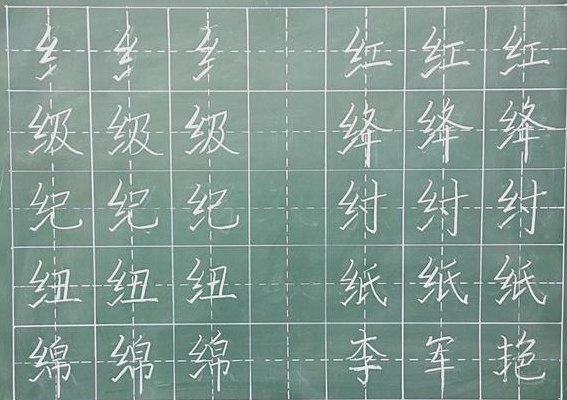 纟 纟 纟 红 红 红
级 级 级 绛 绛 绛
纪 纪 纪 纣 纣 纣
纽 纽 纽 纸 纸 纸
绵 绵 绵 李 军 艳